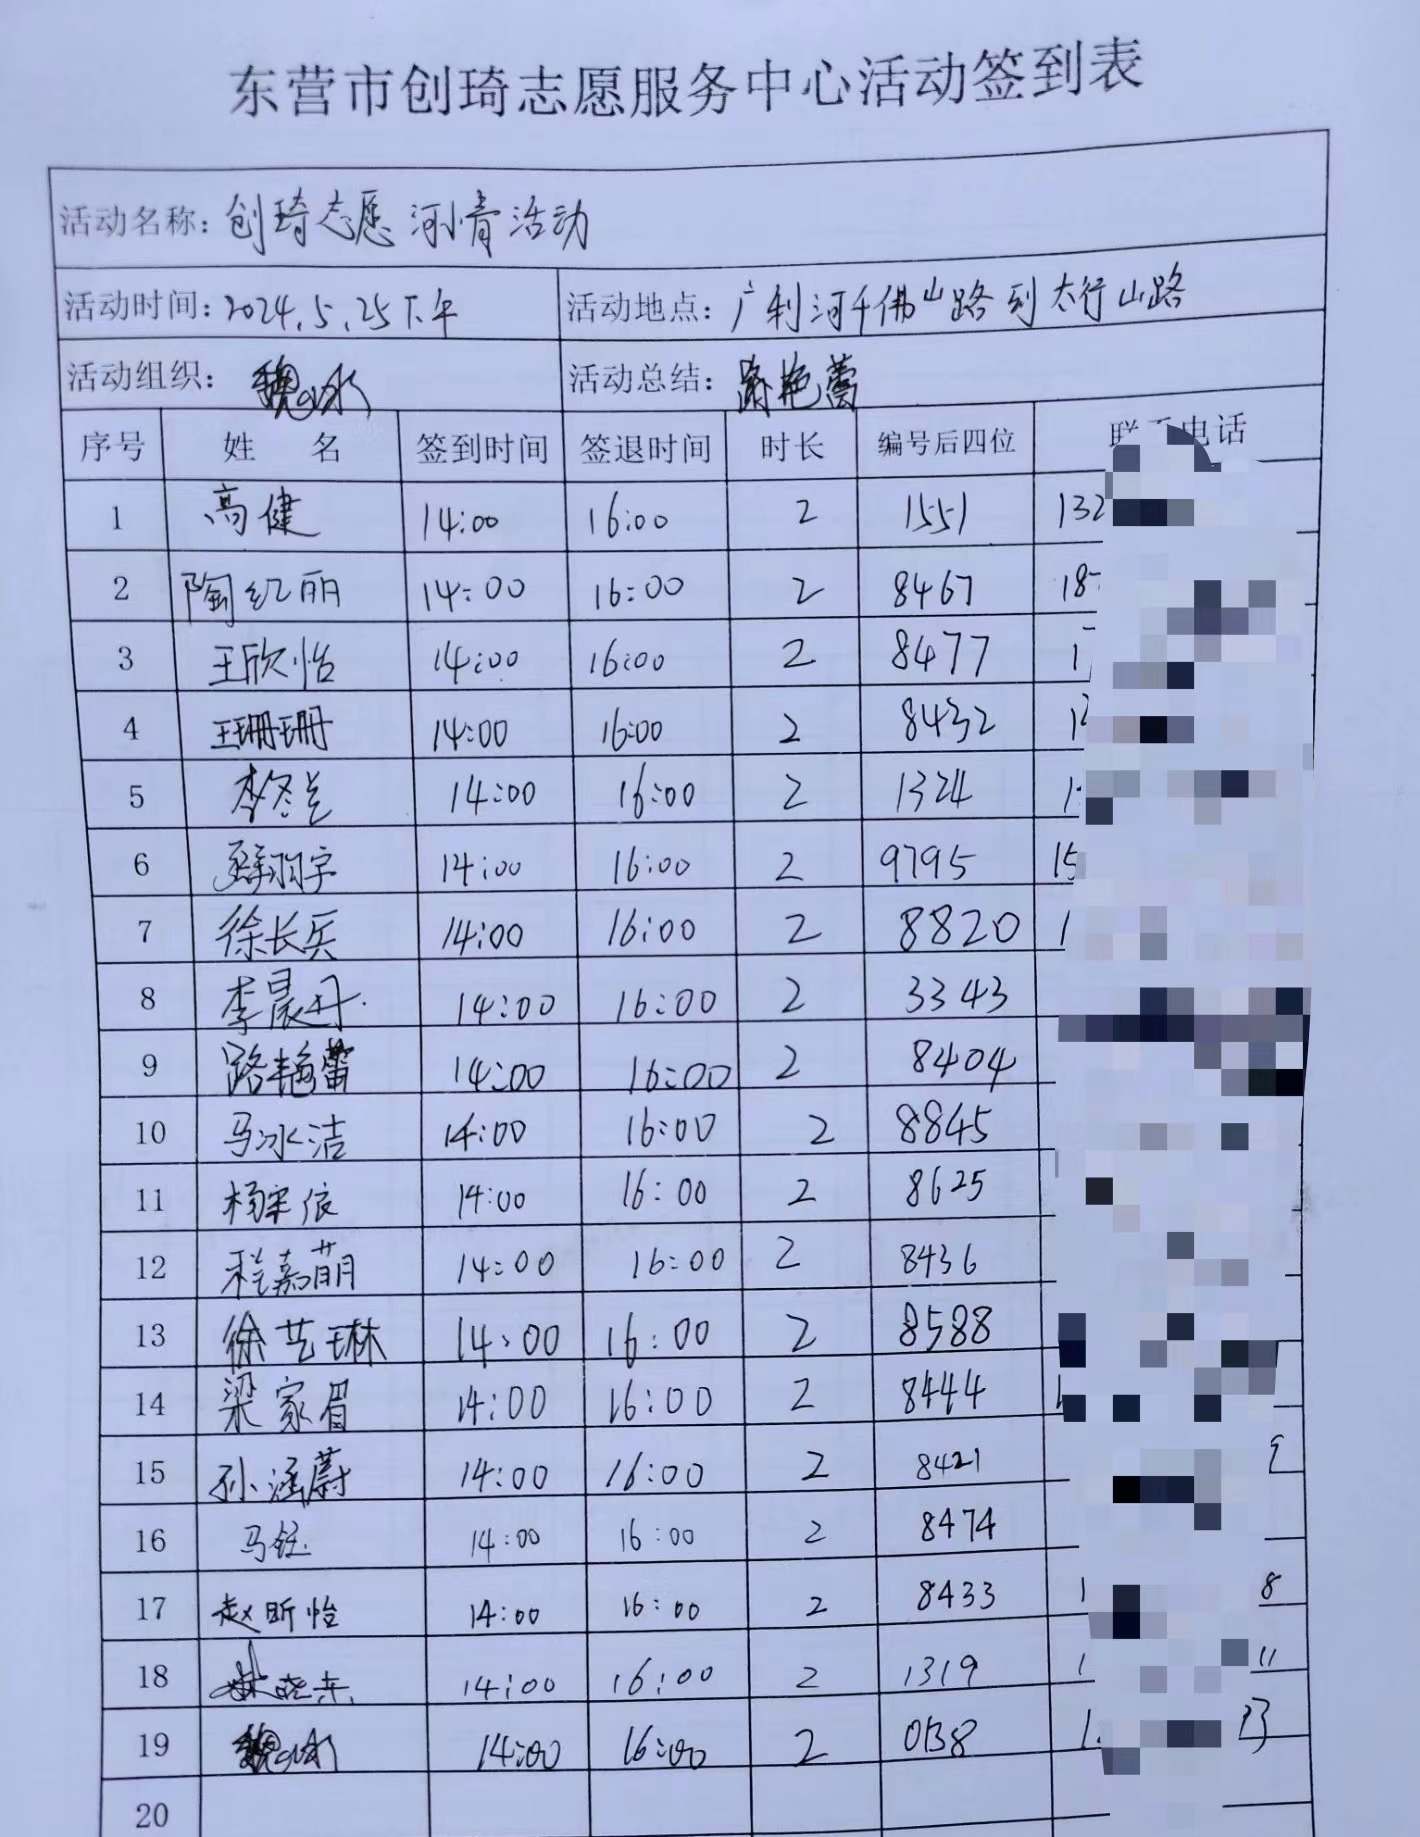 东营市创琦志愿服务中心活动签到表
活动名称：创琦志愿河小青活动
活动时间：2024.5.25下午 活动地点：广利河千佛山路到太行山路
活动组织：魏冰 活动总结：路艳蕾
序号 姓 名 签到时间 签退时间 时长 编号后四位 电话
1 高健 14:00 16:00 2 1551 132
2 陶红丽 14:00 16:00 2 8467 18
3 王欣怡 14:00 16:00 2 8477 1
4 王珊珊 14:00 16:00 2 8432 1
5 李冬兰 14:00 16:00 2 1324 1
6 14:00 16:00 2 9795 15
7 徐长兵 14:00 16:00 2 8820 1
8 李晨丹 14:00 16:00 2 3343
9 路艳蕾 14:00 16:00 2 8404
10 马冰洁 14:00 16:00 2 8845
11 14:00 16:00 2 8625
12 程嘉萌 14:00 16:00 2 8436
13 徐艺琳 14:00 16:00 2 8588
14 梁家眉 14:00 16:00 2 8444
15 孙涵蔚 14:00 16:00 2 8421
16 马钰 14:00 16:00 2 8474
17 赵昕怡 14:00 16:00 2 8433 1 8
18 14:00 16:00 2 1319 1 11
19 魏冰 14:00 16:00 2 0138 1 23
20